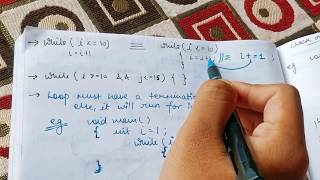 → while (i<=10) ≡ while (i<=10)
i=i+1 { i=i+1 //≡ i+=1;
→ while (i>=10 && j<=15) { }
→ Loop must have a termina
else, it will run for i
eg void main()
{ int i=1;
while (i
}
eg